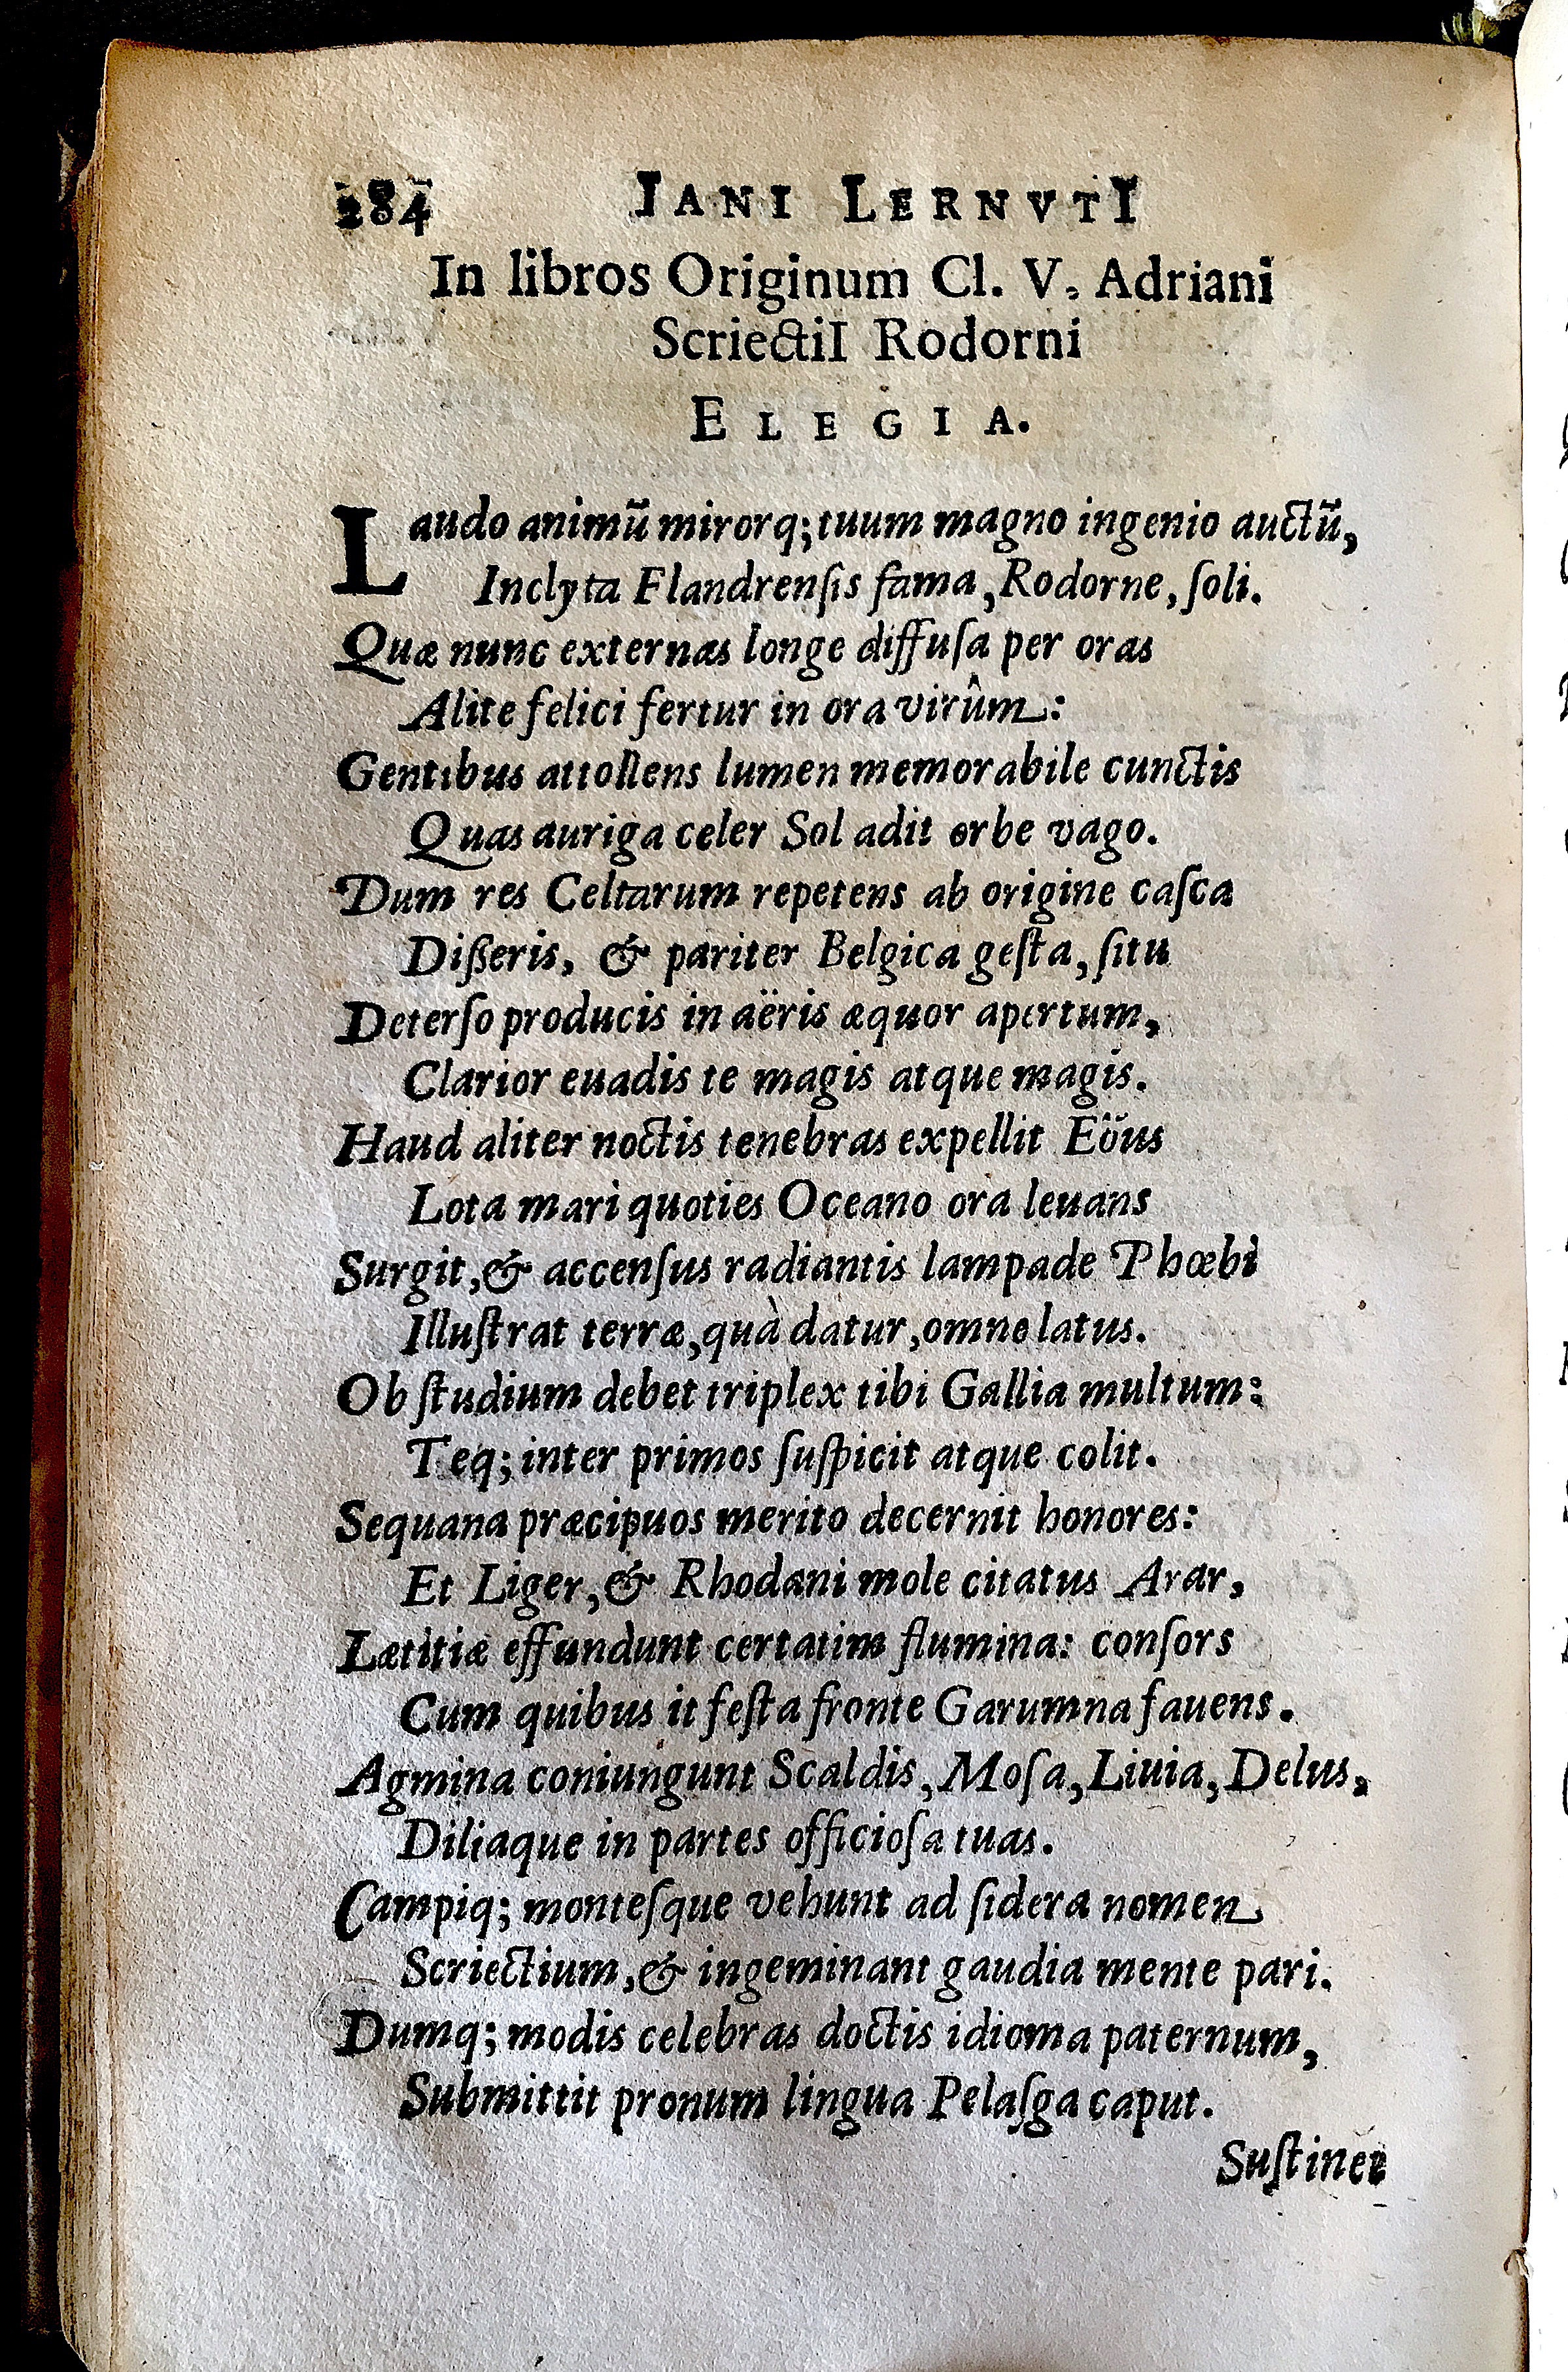 284 IANI LERNVTI
In libros Originum Cl. V. Adriani
ScriectiI Rodorni
ELEGIA.
Laudo animū mirorq; tuum magno ingenio auctū,
Inclyta Flandrenſis fama, Rodorne, ſoli.
Quæ nunc externas longe diffuſa per oras
Alite felici fertur in ora virûm:
Gentibus attollens lumen memorabile cunctis
Quas auriga celer Sol adit orbe vago.
Dum res Celtarum repetens ab origine caſca
Diſſeris, & pariter Belgica geſta, ſitu
Deterſo producis in aëris æquor apertum,
Clarior euadis te magis atque magis.
Haud aliter noctis tenebras expellit Eöus
Lota mari quoties Oceano ora leuans
Surgit, & accenſus radiantis lampade Phœbi
Illuſtrat terræ, quà datur, omne latus.
Ob ſtudium debet triplex tibi Gallia multum:
Teq; inter primos ſuſpicit atque colit.
Sequana præcipuos merito decernit honores:
Et Liger, & Rhodani mole citatus Arar,
Lætitiæ effundunt certatim flumina: conſors
Cum quibus it feſta fronte Garumna fauens.
Agmina coniungunt Scaldis, Moſa, Liuia, Delus,
Diliaque in partes officioſa tuas.
Campiq; monteſque vehunt ad ſidera nomen
Scriectium, & ingeminant gaudia mente pari.
Dumq; modis celebras doctis idioma paternum,
Submittit pronum lingua Pelaſga caput.
Suſtinet